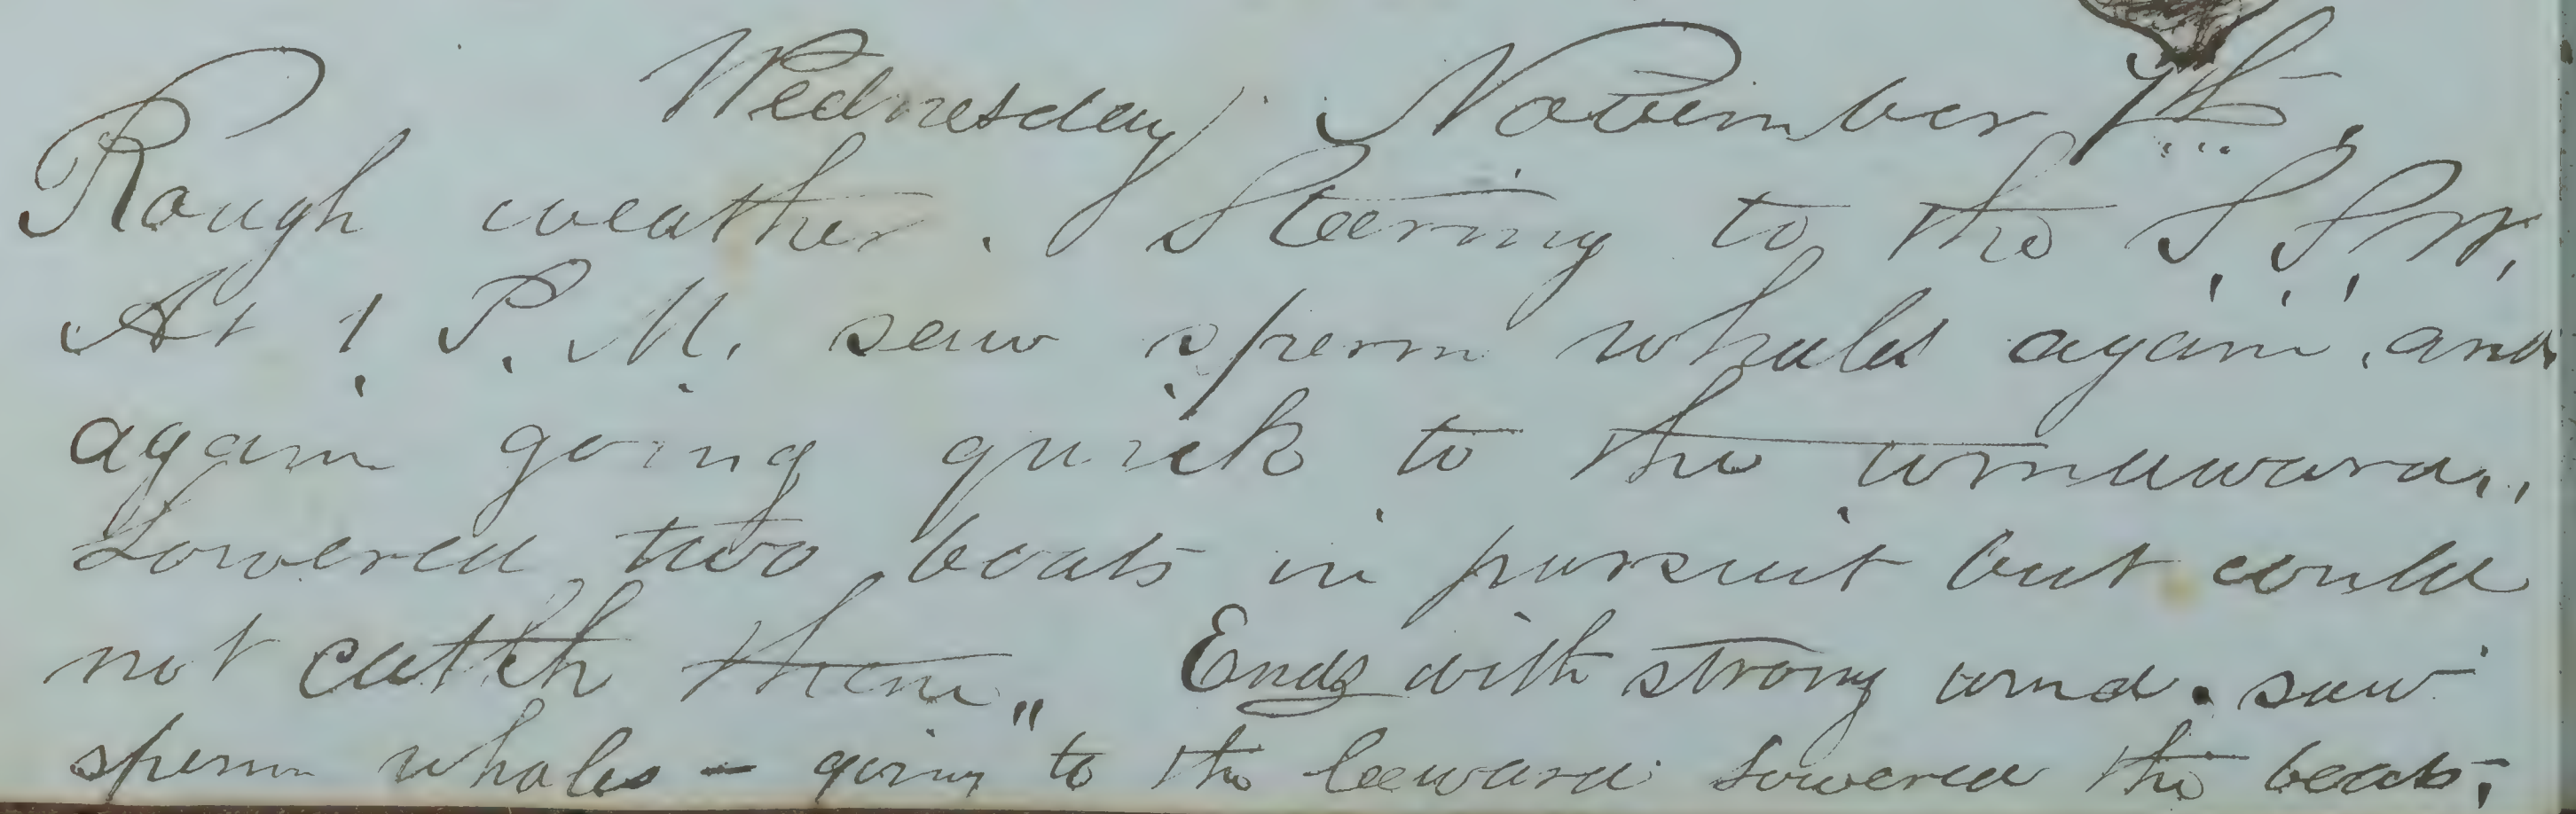 Wednesday November 7th.
Rough weather. Steering to the S.S.W.
At 1 P.M. saw sperm whales again, and
again going quick to the windward,,
Lowered two boats in pursuit but could
not catch them,, Ends with strong wind. saw
sperm whales - going to the leeward lowered the boats,